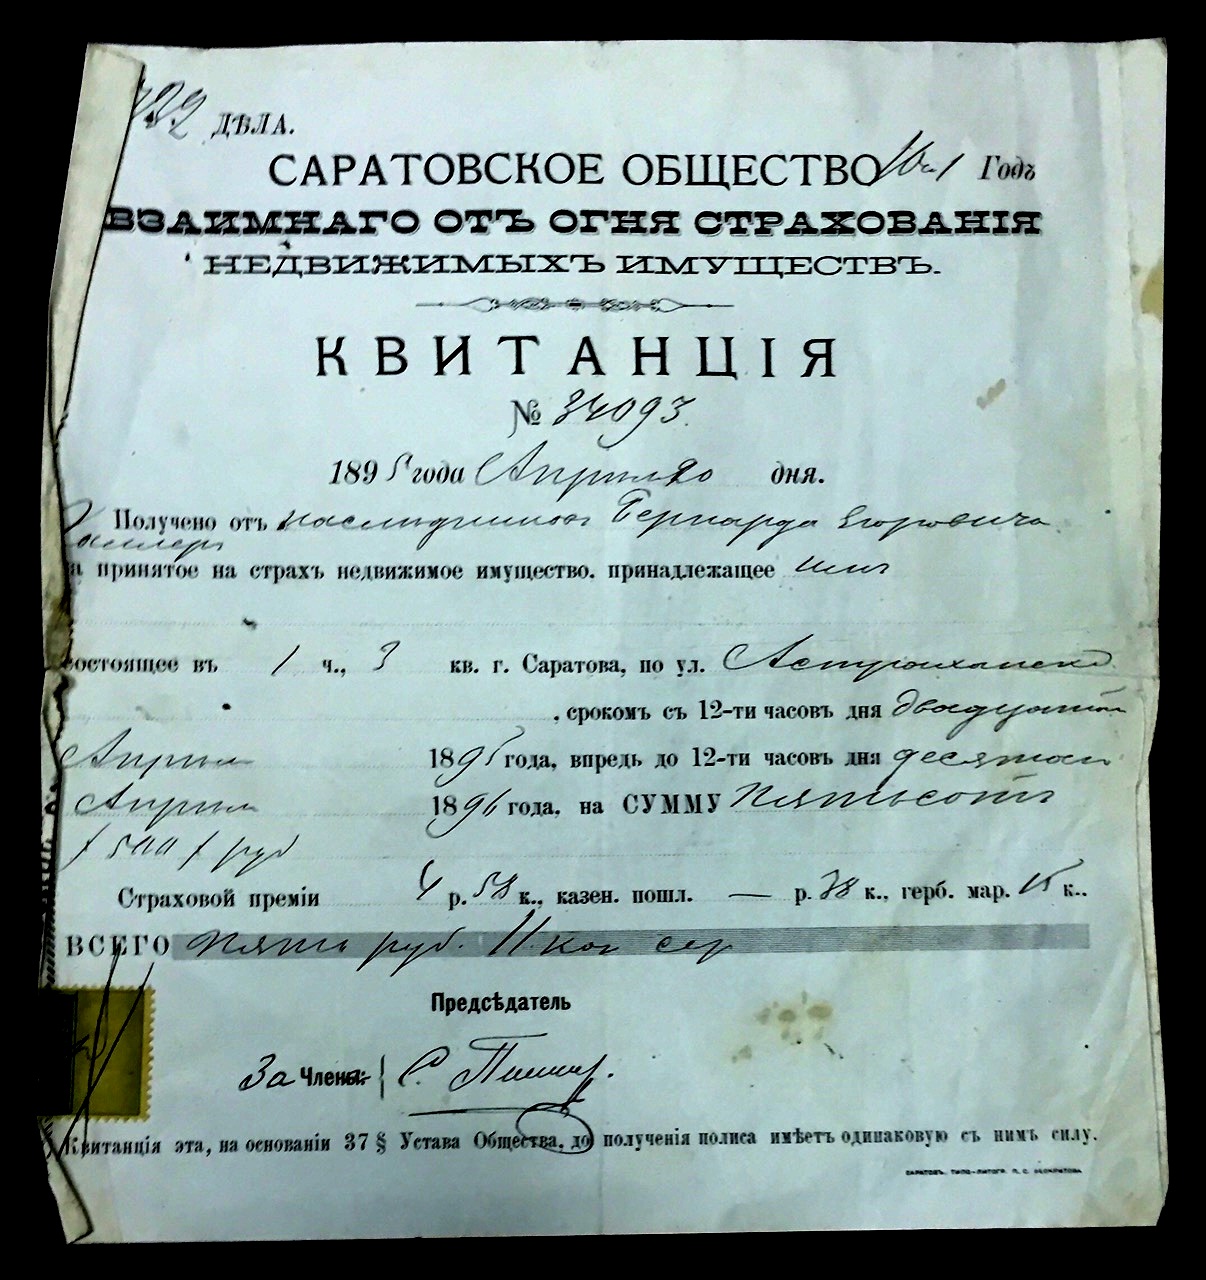 ДѢЛА.
САРАТОВСКОЕ ОБЩЕСТВО Годъ
ВЗАИМНАГО ОТЪ ОГНЯ СТРАХОВАНІЯ
НЕДВИЖИМЫХЪ ИМУЩЕСТВЪ.
КВИТАНЦІЯ
№ 34093.
1895 года Апреля 20 дня.
Получено отъ наследниковъ Бернарда Егоровича
принятое на страхъ недвижимое имущество, принадлежащее имъ
состоящее въ 1 ч., 3 кв. г. Саратова, по ул. Астраханской
, срокомъ съ 12-ти часовъ дня двадцатаго
Апреля 1895 года, впредь до 12-ти часовъ дня
Апреля 1896 года, на СУММУ Пятьсотъ
/ 500 / руб
Страховой преміи 4 р. 58 к., казен. пошл. — р. 38 к., герб. мар. 15 к..
ВСЕГО Пять руб. 11 коп сер
Предсѣдатель
За Члены: С.
Квитанція эта, на основаніи 37 § Устава Общества, до полученія полиса имѣетъ одинаковую съ нимъ силу.
САРАТОВЪ. ТИПО-ЛИТОГР. П. С. ФЕОКРИТОВА